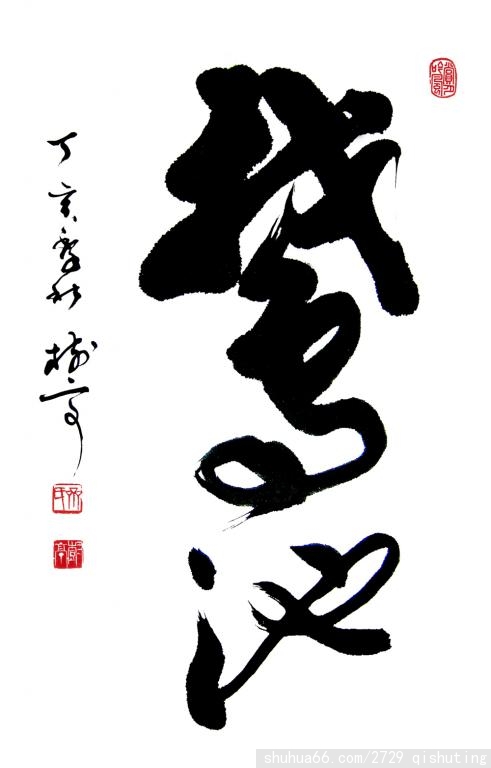 鵞池
丁亥季秋 樹亭
shuhua66.com/2729 qishuting